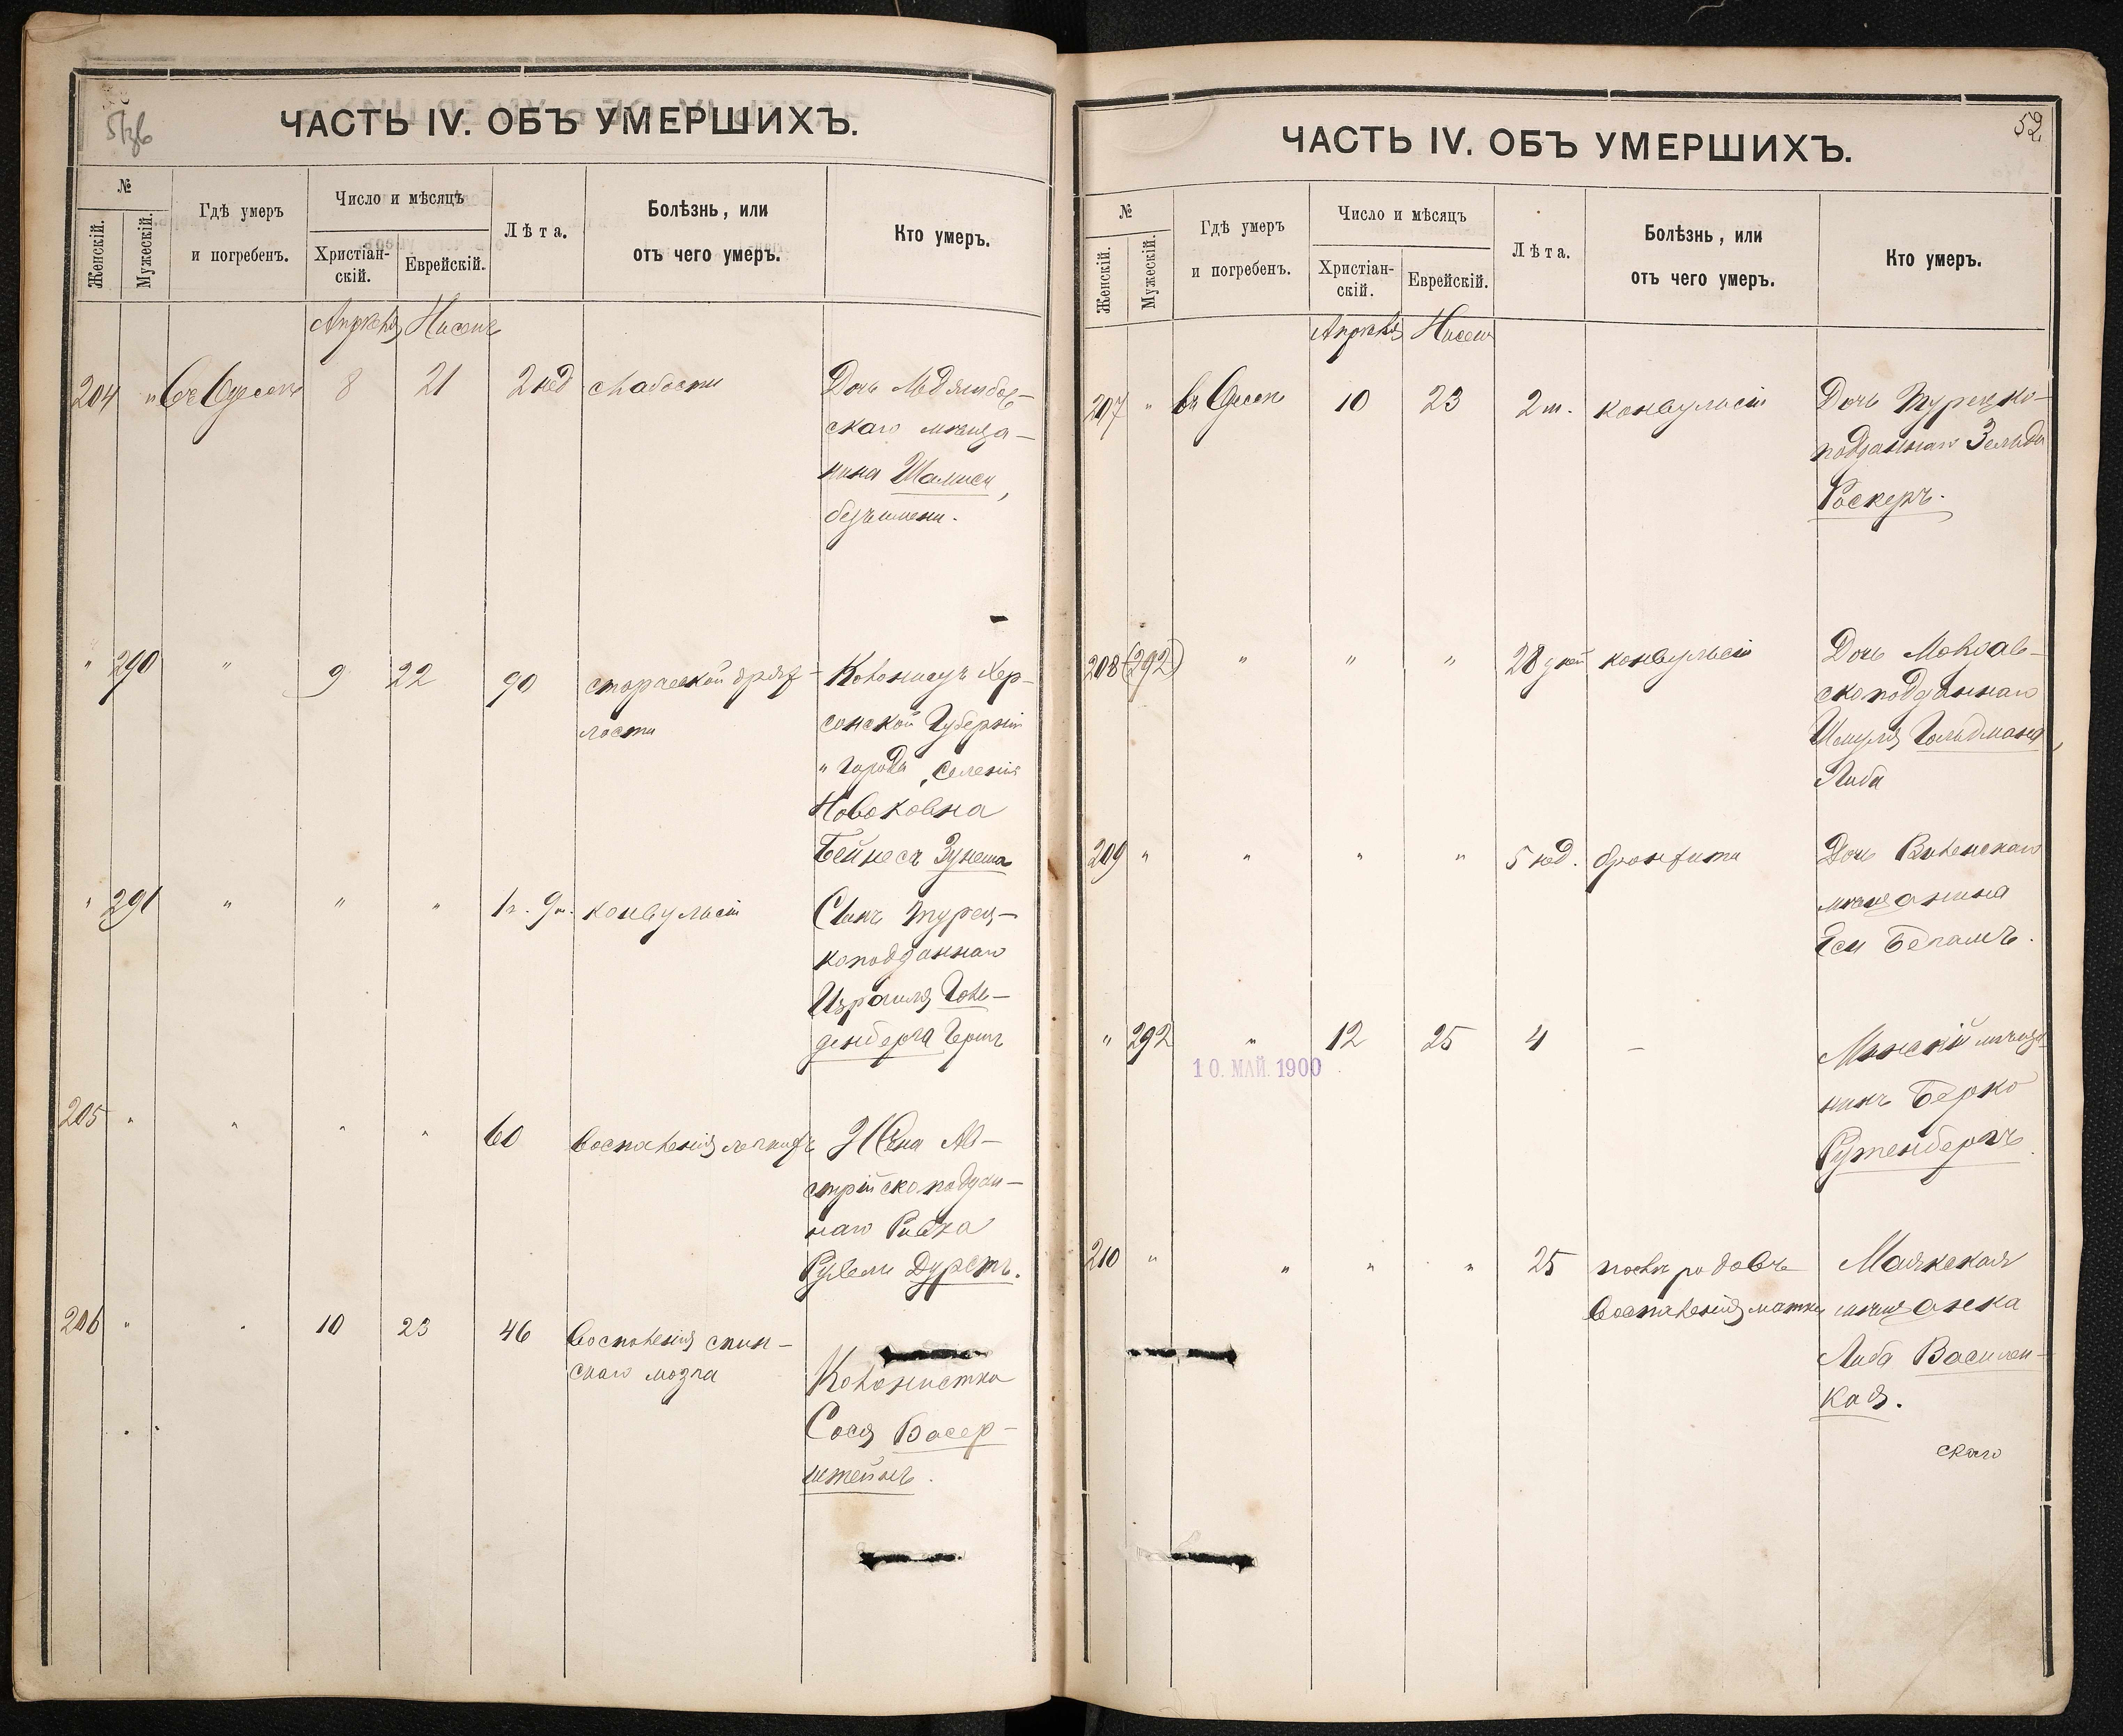 ЧАСТЬ IV. ОБЪ УМЕРШИХЪ.
№
Женскій.
Мужескій.
Гдѣ умеръ
и погребенъ.
Число и мѣсяцъ
Христіан-
скій.
Еврейскій.
Лѣта.
Болѣзнь, или
отъ чего умеръ.
Кто умеръ.
Апрѣля Нисонъ
204 " въ Одессѣ 8 21 2 нед слабости Дочь
скаго мѣща-
нина
безъ имени.
" 290 " 9 22 90 старческой дрях-
лости
Колонистъ Хер-
сонской Губерніи
" города, селенія
Новоковна
Бейнесъ Зунеша
" 291 " " " 1 г. 9 м. конвульсіи Сынъ турец-
коподданнаго
Израиля Голь-
денберга Герш
205 " " " " 60 воспаленія легкихъ Жена Ав-
стрійскоподдан-
наго Ривка
Рухель Дурстъ.
206 " " 10 23 46 воспаленія спин-
наго мозга
Колонистка
Сося Васер-
штейнъ.
52
ЧАСТЬ IV. ОБЪ УМЕРШИХЪ.
№
Женскій.
Мужескій.
Гдѣ умеръ
и погребенъ.
Число и мѣсяцъ
Христіан-
скій.
Еврейскій.
Лѣта.
Болѣзнь, или
отъ чего умеръ.
Кто умеръ.
Апрѣля Нисонъ
207 " въ Одессѣ 10 23 2 м. конвульсіи Дочь Турецко-
подданнаго Зельда
Роскеръ.
208 (292) " " " 28 дней конвульсіи Дочь Молдав-
скоподданнаго
Шмуля Гольдмана,
Либа
209 " " " " 5 нед. бронхита Дочь Виленскаго
мѣщанина
" 292 " 12 25 4 – Минскій мѣща-
нинъ Берко
Рутенбергъ.
10. МАЙ. 1900
210 " " " " 25 послѣ родовъ
воспаленія матки
Маякская
мѣщанка
Либа Василен-
кая.
скаго